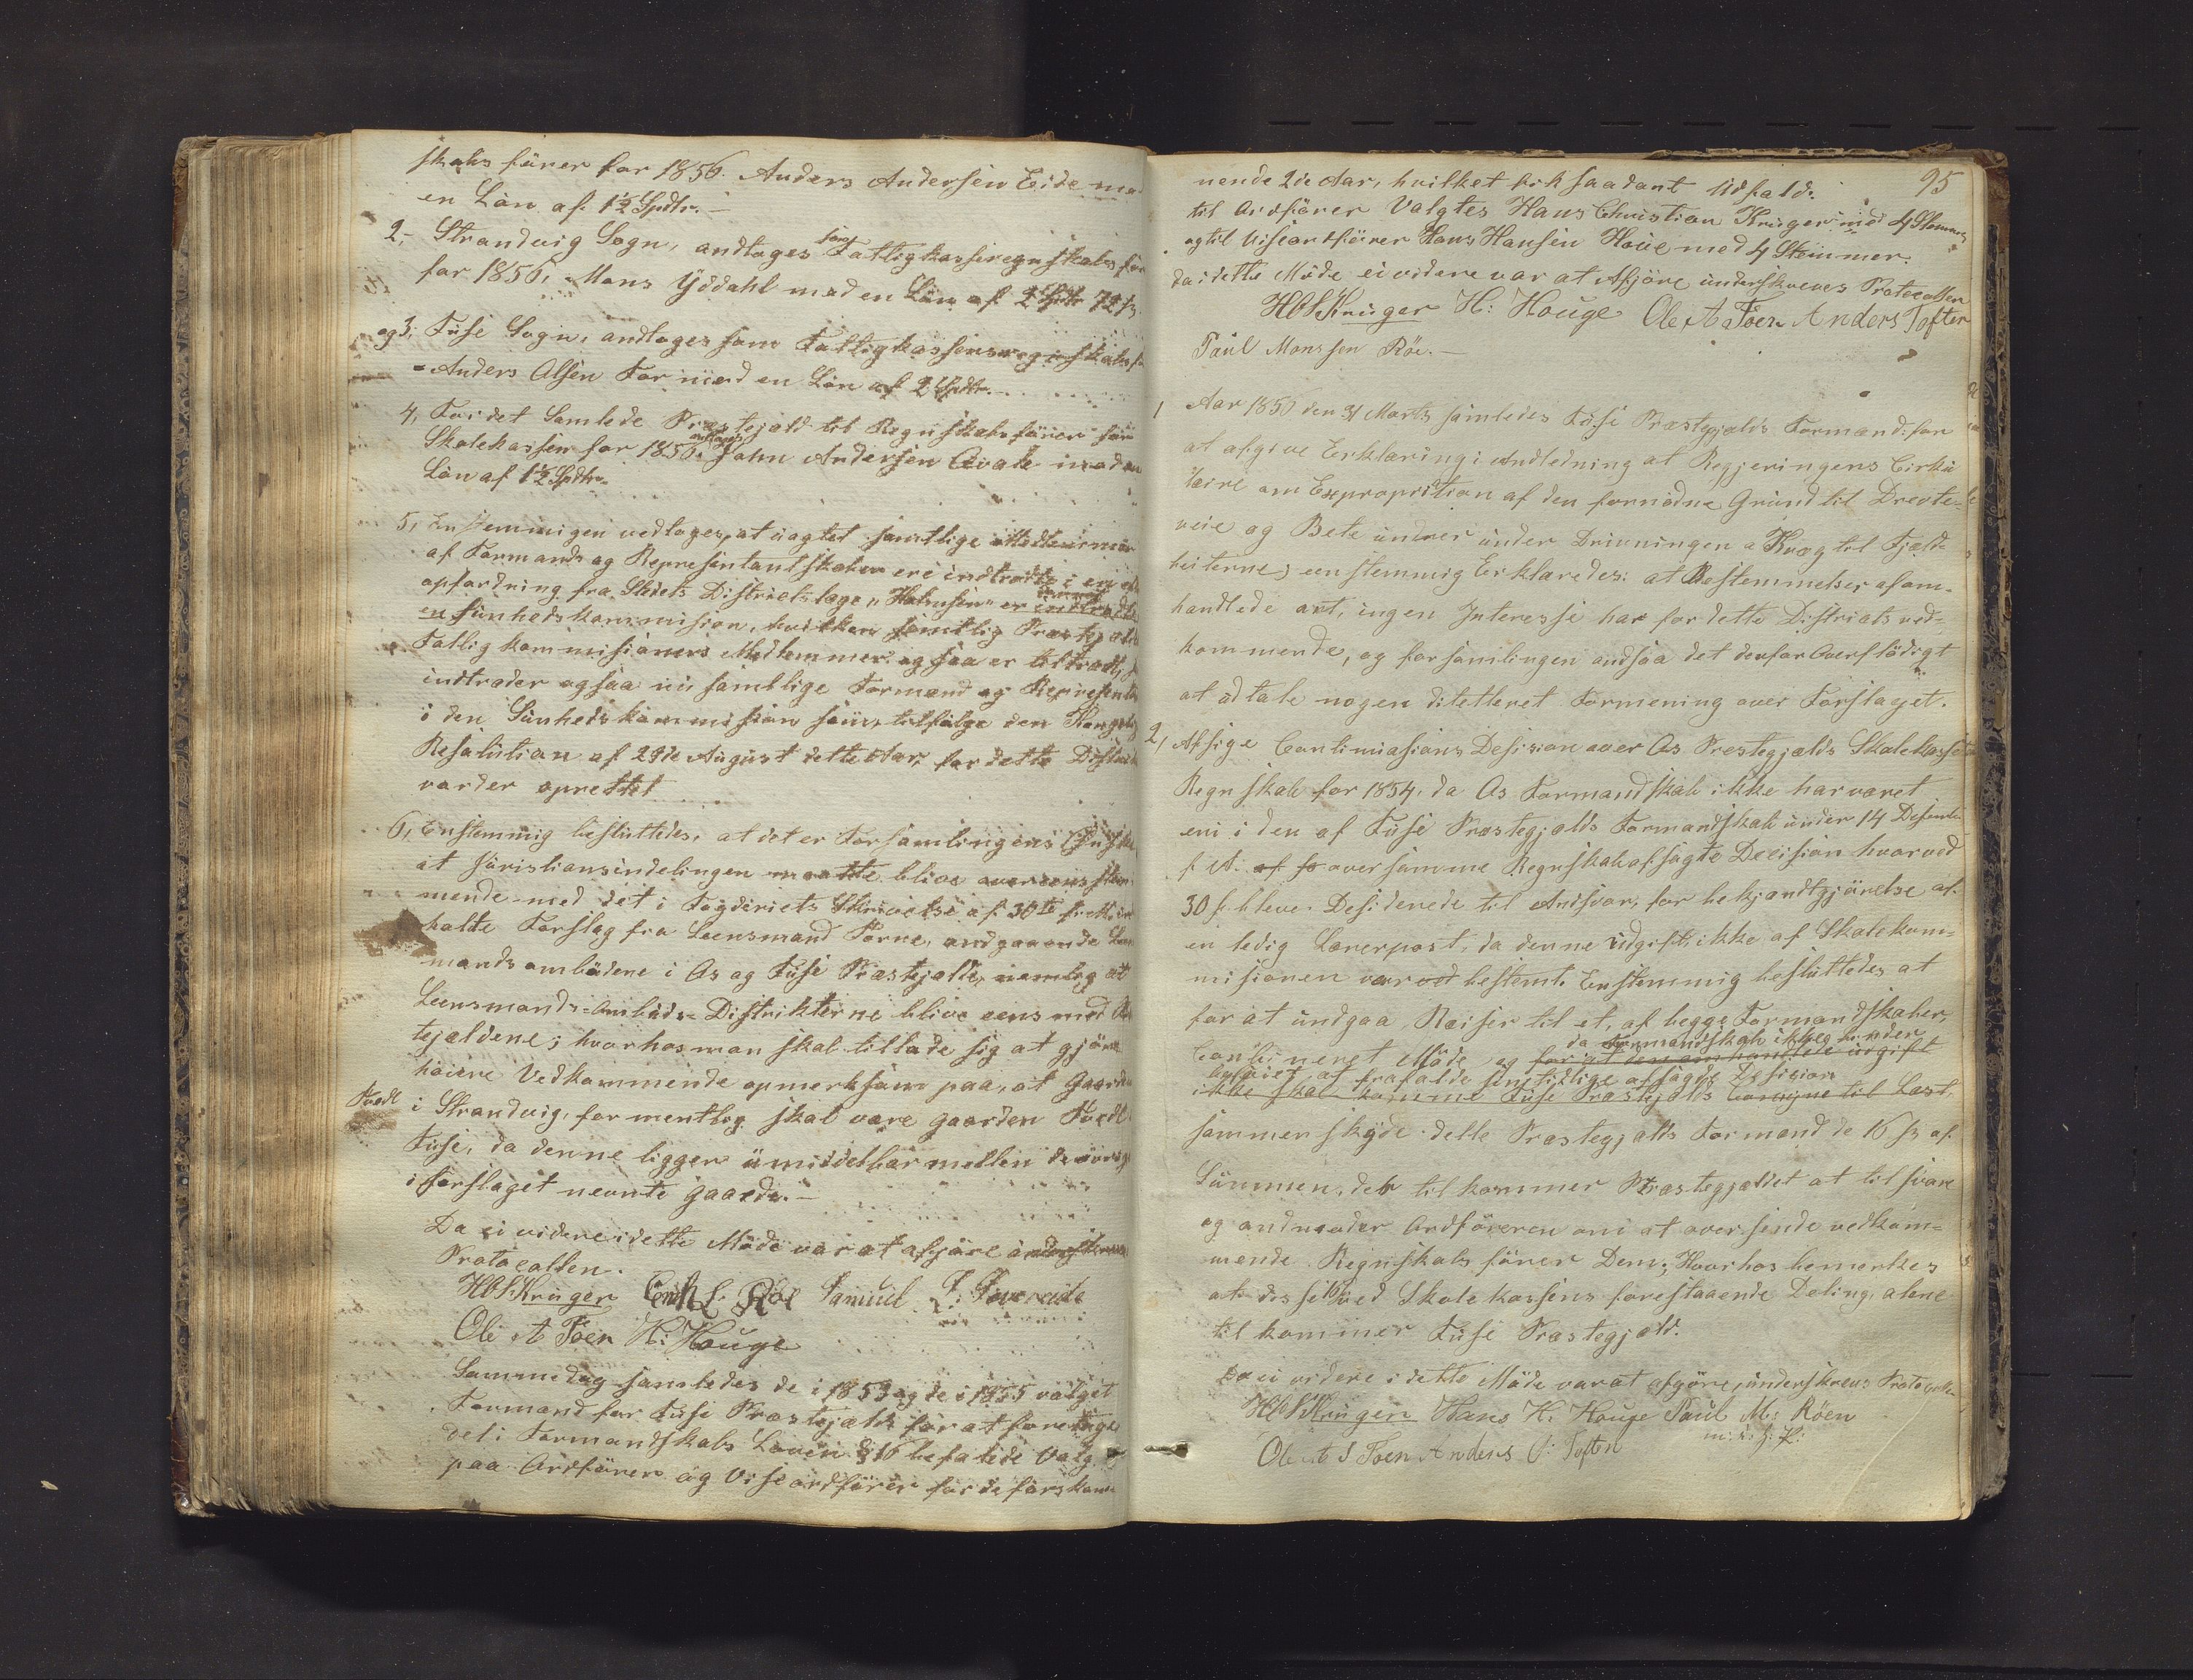 skabs fürer for 1856. Anders Andersen Eide
en Lön af 1½ Spdlr. —
2, Strandvig Sogn, andtoges som Fattigkasseregnskabs
for 1856, Mons Yddahl med en Lön af 2 Spdlr 72 s.
og 3, Füse Sogn, andtoges som Fattigkassens regnskabs
Anders Olsen Tor med en Lön af 2 Spdlr. —
4, For det Samlede Præstegjæld til Regnskabsfürer for
Skolekassen for 1856 antoges John Andersen med en
Lön af 1½ Spdlr.
5, Enstemmigen vedtoges, at uagtet samtlige
af Formands og Representantskabet ere indtrædte i en
opfordring fra Stedets Districtslæge „ " er
en Sünhedskommision, hvilken samtlig Præstegjældets
Fattigkommisioners Medlemmer ogsaa er tiltraadt,
indtræder ogsaa nü samtlige Formænd og Represent
i den Sünhedskommission som, tilfölge den Kongelig
Resolution af 29de August dette Aar, for dette
vorder oprettet
6, Enstemmig besluttedes, at det er Forsamlingens Önske,
at Jüristiansindelingen maatte blive overeensstem
mende med det i Fogderiets Skrivelse af 30te f: M: in
holdte Forslag fra Leensmand Torne, andgaaende Leens
mandsombüdene i Os og Füse Præstegjælde, nemlig at
Leensmands-Ombüds-Distrikterne blive eens med
tejældene; hvorhos man skal tillade sig at gjöre
höiere Vedkommende opmerksom paa, at Gaarden
Tvedt i Strandvig, formentlig skal være gaarden Tvedt
Füse, da denne ligger ümiddelbar mellem de övrige
i forslaget nevnte gaarde. —
Da ei videre i dette Möde var at afgjöre
Protocollen.
HCS Krüger Samuel
Ole A Töen H: Houge
Samme dag samledes de i 1853 og de i 1855 valgte
Formænd for Füse Præstegjæld for at foretage
det i Formandskabs Loven § 16 befalede Valg
paa Ordfürer og Viseordfürer for de förstkom
95
mende 2de Aar, hvilket fik saadant Udfald:
til Ordförer Valgtes Hans Christian Krüger med 4 Stemmer
og til Viseordförer Hans Hansen Houe med 4 Stemmer.
da i dette Möde ei videre var at Afgjöre ünderskreves Protocollen
HCS Krüger H: Houge Ole A Töen Anders Toften
Paül Monssen Röe. —
1 Aar 1856 den 31 Marts samledes Füse Præstegjælds Formænd for
at afgive Erklæring i Andledning at Regjeringens Cirkü
læire om Expropriation af den fornödne Gründ til Drevte-
veie og Bete under Drivningen a Kvæg til Fjeld-
beiterne; eenstemmig Erklæredes: at Bestemmelser afom-
handlede art, ingen Interesse har for dette Districts ved-
kommende, og forsamlingen andsaa det derfor Overflödigt
at odtale nogen ditetteret Formening over Forslaget.
2, Afsige Continuasions Desision over Os Prestegjælds Skolekasse
Regnskab for 1854, da Os Formandskab ikke har været
eni i den af Füse Præstegjælds Formandskab under 14 Desember
f: A: af fo over samme Regnskab afsagte Decision hvorved
30 s. bleve Desiderede til Andsvar, for bekjendtgjörelse af
en ledig Lærerpost, da denne üdgift, ikke af Skolekom-
misionen var ved bestemt. Enstemmig besluttedes at
for at undgaa, Reiser til et, af begge Formandskaber,
Combineret Möde, og for at den omhandlede üdgift
da Formandskab
at frafalde sin tidlige afsagde Desision
ikke skal komme Füse Præstejælds til Last,
sammenskyde dette Præstegjælds Formænd de 16 s af
Sümmen, der tilkommer Præstegjældet at tilsvare
og andmoder Ordföreren om at oversende vedkom-
mende Regnskabsfürer Dem; Hvorhos bemerkes
at disse 16 s ved Skolekassens forestaaende Deling, alene
tilkommer Füse Præstegjæld.
Da ei videre i dette Möde var at afgöre, ünderskreves Protocollen
HCS Krüger Hans H. Houge Paül M: Röen
m: i: h: P:
Ole A S Töen Anders O: Toften